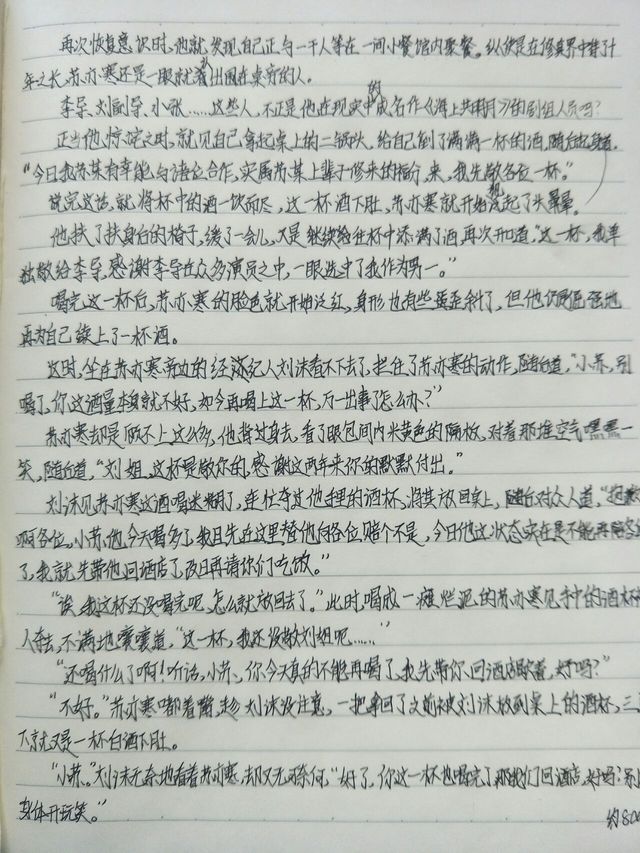 再次恢复意识时,他就发现自己正与一干人等在一间小餐馆内聚餐。纵使是在修真界中待了十
年之长,苏亦寒还是一眼就认出围在桌旁的人。
李导、刘副导、小张……这些人,不正是他在现实中的成名作《海上共明月》的剧组人员吗?
正当他惊诧之时,就见自己拿起桌上的二锅头,给自己倒了满满一杯的酒,随后起身道,
“今日我苏某有幸能与诸位合作,实属苏某上辈子修来的福分,来,我先敬各位一杯。”
说完这话,就将杯中的酒一饮而尽,这一杯酒下肚,苏亦寒就开始犯起了头晕。
他扶了扶身台的椅子,缓了一会儿,又是继续给往杯中添满了酒,再次开口道,“这一杯,我单
独敬给李导,感谢李导在众多演员之中,一眼选中了我作为男一。”
喝完这一杯后,苏亦寒的脸色就开始泛红,身形也有些歪歪斜了,但他仍倔强地
再为自己续上了一杯酒。
这时,坐在苏亦寒旁边的经济纪人刘沫看不下去了,拦住了苏亦寒的动作,随后道,“小苏,别
喝了,你这酒量本身就不好,如今再喝上这一杯,万一出事了怎么办?”
苏亦寒却是顾不上这么多,他背过身去,看了眼包间内米黄色的隔板,对着那堆空气嘿嘿一
笑,随后道,“刘姐,这杯是敬你的,感谢这两年来你的默默付出。”
刘沫见苏亦寒这酒喝迷糊了,连忙夺过他手里的酒杯,将其放回桌上,随后对众人道,“抱歉
啊各位,小苏他今天喝多了,我且先在这里替他向各位赔个不是,今日他这状态实在是不能再陪客
了,我就先带他回酒店了,改日再请你们吃饭。”
“诶,我这杯还没喝完呢,怎么就放回去了。”此时,喝成一滩烂泥的苏亦寒见手中的酒杯被
人夺去,不满地嚷嚷道,“这一杯,我还没敬刘姐呢……”
“还喝什么了啊!听话,小苏,你今天真的不能再喝了,我先带你回酒店歇着,好吗?”
“不好。”苏亦寒嘟着嘴,趁刘沫没注意,一把拿回了之前被刘沫放到桌上的酒杯,三
下就又是一杯白酒下肚。
“小苏。”刘沫无奈地看着苏亦寒,却又无可奈何,“好了,你这一杯也喝完了,那我们回酒店,好吗?别
身体开玩笑。”
约800